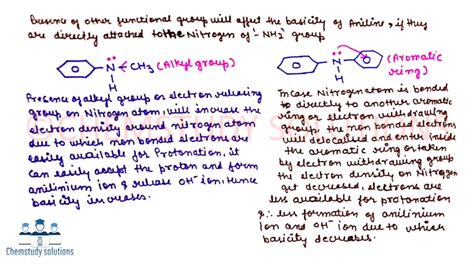 Presence of other functional group will affect the basicity of Aniline, if they
are directly attached to the Nitrogen of -NH2 group
N
CH3 (Alkyl group)
H
N
(Aromatic
ring)
H
Presence of alkyl group or electron releasing
group on Nitrogen atom will increase the
electron density around nitrogen atom
due to which non bonded electrons are
easily available for Protonation, it
can easily accept the proton and form
anilinium ion & release OH- ion. Hence
basicity increases.
In case Nitrogen atom is bonded
to directly to another aromatic
ring or electron withdrawing
group, the non bonded electron
will delocalised and enter inside
the aromatic ring or taken
by electron withdrawing group
the electron density on Nitrogen
get decreased, electrons are
less available for protonation
& ∴ less formation of anilinium
Ion and OH- ion due to which
basicity decreases.
Chemstudy solutions